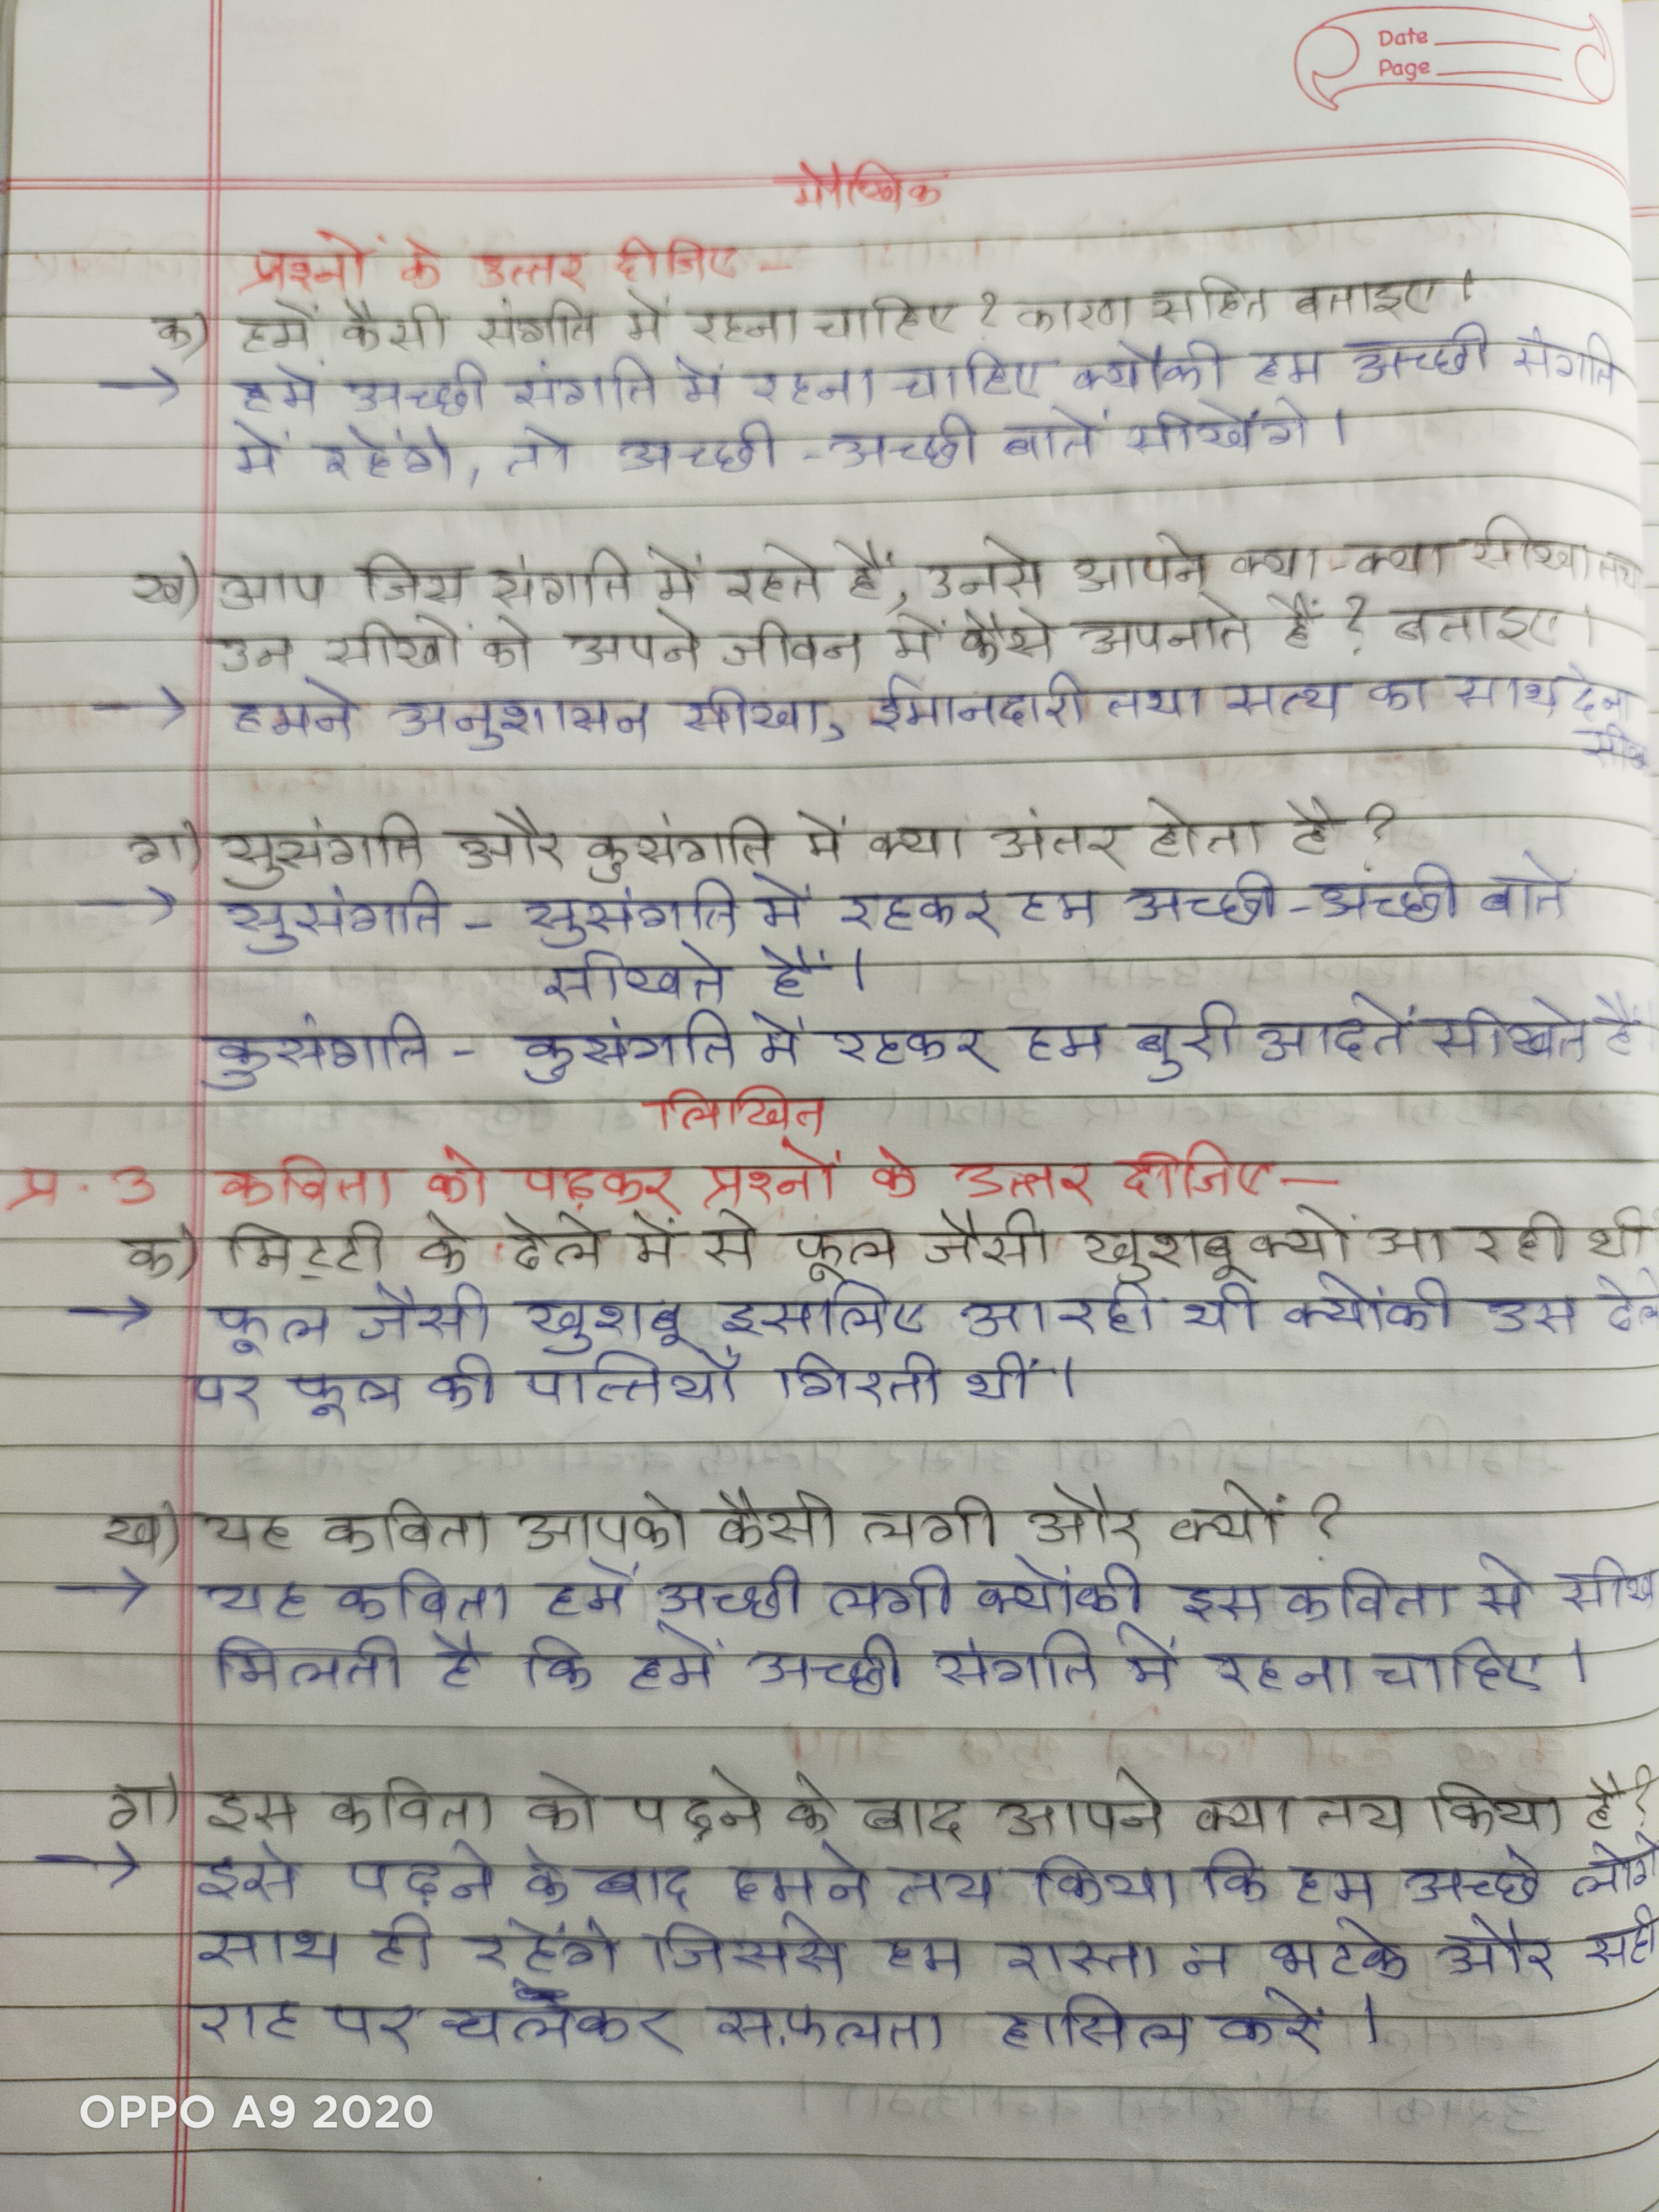 Date
Page
मौखिक
प्रश्नों के उत्तर दीजिए -
क) हमें कैसी संगति में रहना चाहिए ? कारण सहित बताइए ।
→ हमें अच्छी संगति में रहना चाहिए क्योंकी हम अच्छी संगति
में रहेंगे, तो अच्छी - अच्छी बातें सीखेंगे ।
ख) आप जिस संगति में रहते हैं, उनसे आपने क्या-क्या सीखा
उन सीखों को अपने जीवन में कैसे अपनाते हैं ? बताइए ।
→ हमने अनुशासन सीखा, ईमानदारी तथा सत्य का साथ देना
ग) सुसंगति और कुसंगति में क्या अंतर होता है ?
→ सुसंगति - सुसंगति में रहकर हम अच्छी-अच्छी बातें
सीखते हैं ।
कुसंगति - कुसंगति में रहकर हम बुरी आदतें सीखते हैं
लिखित
प्र. 3 कविता को पढ़कर प्रश्नों के उत्तर दीजिए -
क) मिट्टी के ढेले में से फूल जैसी खुशबू क्यों आ रही थी
→ फूल जैसी खुशबू इसलिए आ रही थी क्योंकी उस
पर फूल की पत्तियाँ गिरती थीं ।
ख) यह कविता आपको कैसी लगी और क्यों ?
→ यह कविता हमें अच्छी लगी क्योंकी इस कविता से सीख
मिलती है कि हमें अच्छी संगति में रहना चाहिए ।
ग) इस कविता को पढ़ने के बाद आपने क्या तय किया है ?
→ इसे पढ़ने के बाद हमने तय किया कि हम अच्छे
साथ ही रहेंगे जिससे हम रास्ता न भटके और सही
राह पर चलकर सफलता हासिल करें ।
OPPO A9 2020